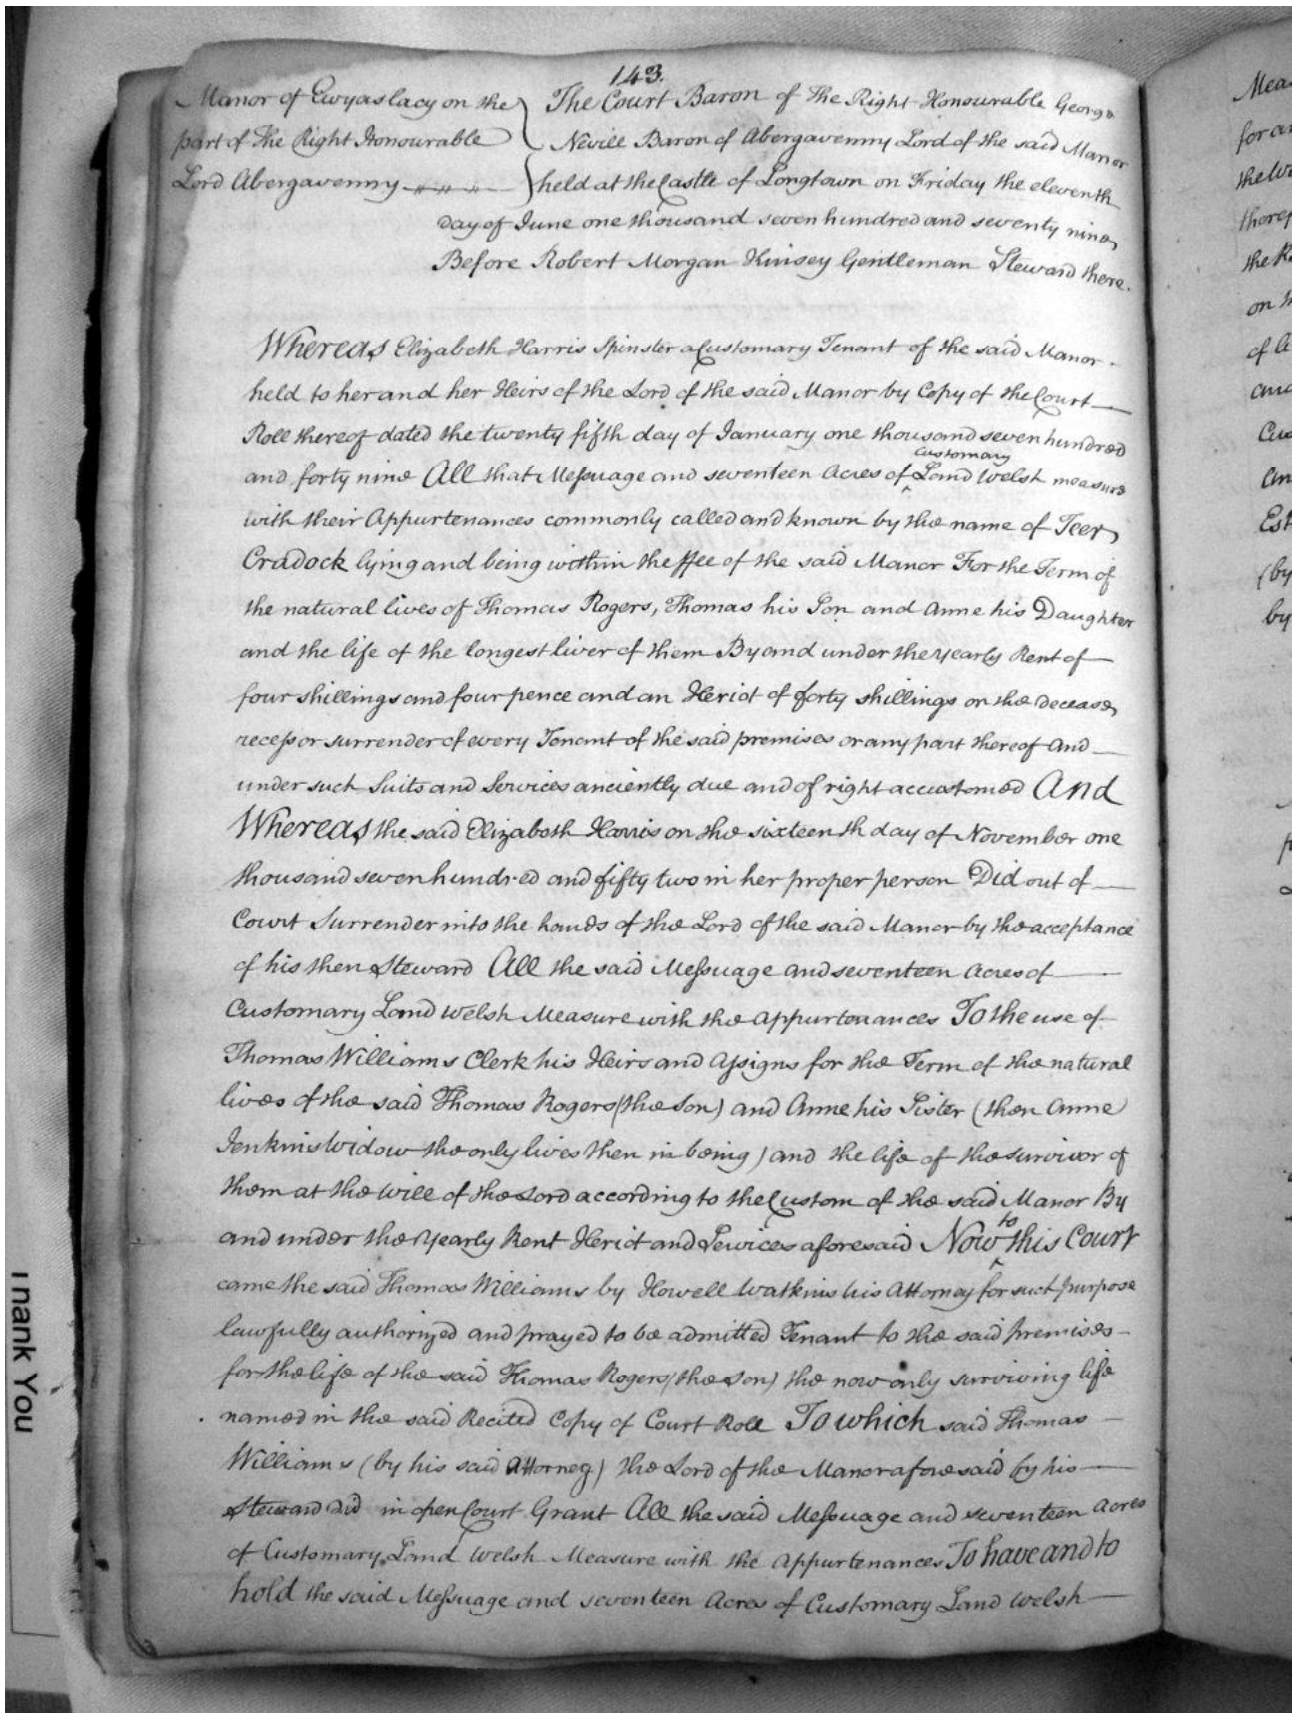 143.
Manor of Ewyaslacy on the
part of the Right Honourable
Lord Abergavenny
The Court Baron of the Right Honourable George
Nevill Baron of Abergavenny Lord of the said Manor
held at the Castle of Longtown on Friday the eleventh
day of June one thousand seven hundred and seventy nine
Before Robert Morgan Kinsey Gentleman Steward there.
Whereas Elizabeth Harris Spinster a Customary Tenant of the said Manor
held to her and her Heirs of the Lord of the said Manor by Copy of the Court
Roll thereof dated the twenty fifth day of January one thousand seven hundred
and forty nine All that Messuage and seventeen Acres of ^Customary Land Welsh measure
with their Appurtenances commonly called and known by the name of Teer
Cradock lying and being within the ffee of the said Manor For the Term of
the natural lives of Thomas Rogers, Thomas his Son and Anne his Daughter
and the life of the longest liver of them By and under the yearly Rent of
four shillings and four pence and an Heriot of forty shillings on the decease
recess or surrender of every Tenant of the said premises or any part thereof and
under such Suits and Services anciently due and of right accustomed And
Whereas the said Elizabeth Harris on the sixteenth day of November one
thousand seven hundred and fifty two in her proper person Did out of
Court Surrender into the hands of the Lord of the said Manor by the acceptance
of his then Steward All the said Messuage and seventeen Acres of
Customary Land Welsh Measure with the Appurtenances To the use of
Thomas Williams Clerk his Heirs and Assigns for the Term of the natural
lives of the said Thomas Rogers (the Son) and Anne his Sister (then Anne
Jenkins Widow the only lives then in being) and the life of the survivor of
them at the Will of the Lord according to the Custom of the said Manor By
and under the Yearly Rent Heriot and Services aforesaid Now ^to this Court
came the said Thomas Williams by Howell Watkins his Attorney for such purpose
lawfully authorized and prayed to be admitted Tenant to the said premises
for the life of the said Thomas Rogers (the Son) the now only surviving life
named in the said Recited Copy of Court Roll To which said Thomas
Williams (by his said Attorney) the Lord of the Manor aforesaid by his
Steward did in open Court Grant All the said Messuage and seventeen Acres
of Customary Land Welsh Measure with the Appurtenances To have and to
hold the said Messuage and seventeen Acres of Customary Land Welsh
Thank You
for
by